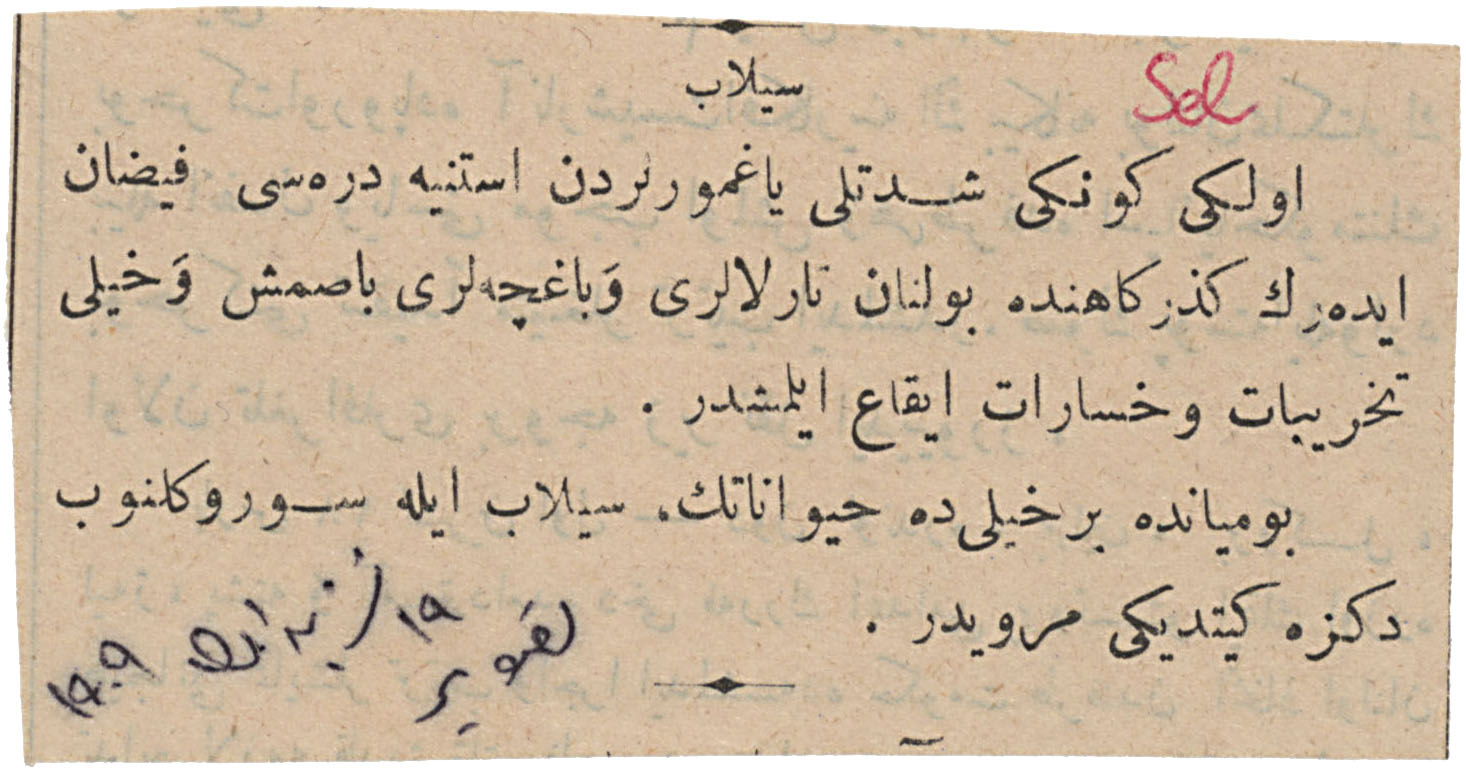 سیلاب
Sel
اولکی کونکی شدتلی یاغمورلردن استنیه دره‌سی فیضان
ایده‌رك کذرکاهنده بولنان تارلالری وَباغچه‌لری باصمش وَخیلی
تخریبات وخسارات ایقاع ایلمشدر .
بومیانده برخیلی‌ده حیواناتك، سیلاب ایله سوروکلنوب
دکزه کیتدیکی مرویدر .
١٩